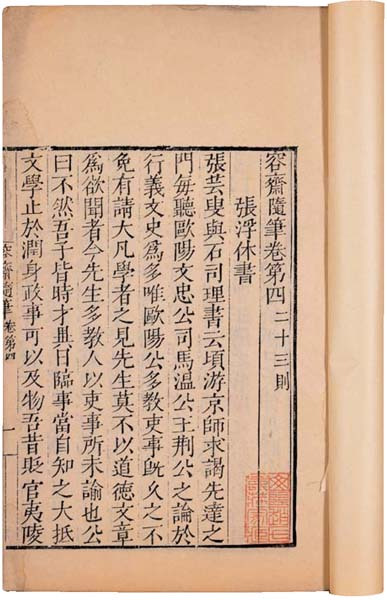 容齋隨筆卷第四 二十三則
張浮休書
張芸叟與石司理書云頃游京師求謁先達之
門每聽歐陽文忠公司馬溫公王荆公之論於
行義文史爲多唯歐陽公多教吏事既久之不
免有請大凡學者之見先生莫不以道德文章
爲欲聞者今先生多教人以吏事所未諭也公
曰不然吾子皆時才異日臨事當自知之大抵
文學止於潤身政事可以及物吾昔貶官夷陵
容齋隨筆 卷第四 一